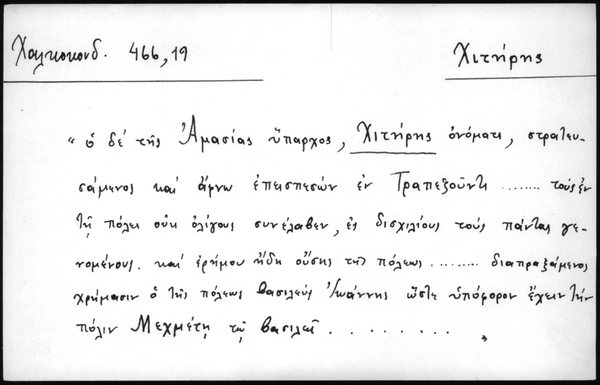 Χαλκοκονδ. 466,19
Χιτήρης
"ὁ δέ τῆς Ἀμασίας ὕπαρχος, Χιτήρης ὀνόματι, στρατευ-
σάμενος καί ἄφνω ἐπεισπεσών ἐν Τραπεζοῦντι ........ τούς ἐν
τῇ πόλει οὐκ ὀλίγους συνέλαβεν, ἐς δισχιλίους τούς πάντας γε-
νομένους. καί ἐρήμου ἤδη οὔσης τῆς πόλεως ......... διαπραξάμενος
χρήμασιν ὁ τῆς πόλεως βασιλεύς Ἰωάννης ὥστε ὑπόφορον ἔχειν τήν
πόλιν Μεχμέτῃ τῷ βασιλεῖ . . . . . . . . "